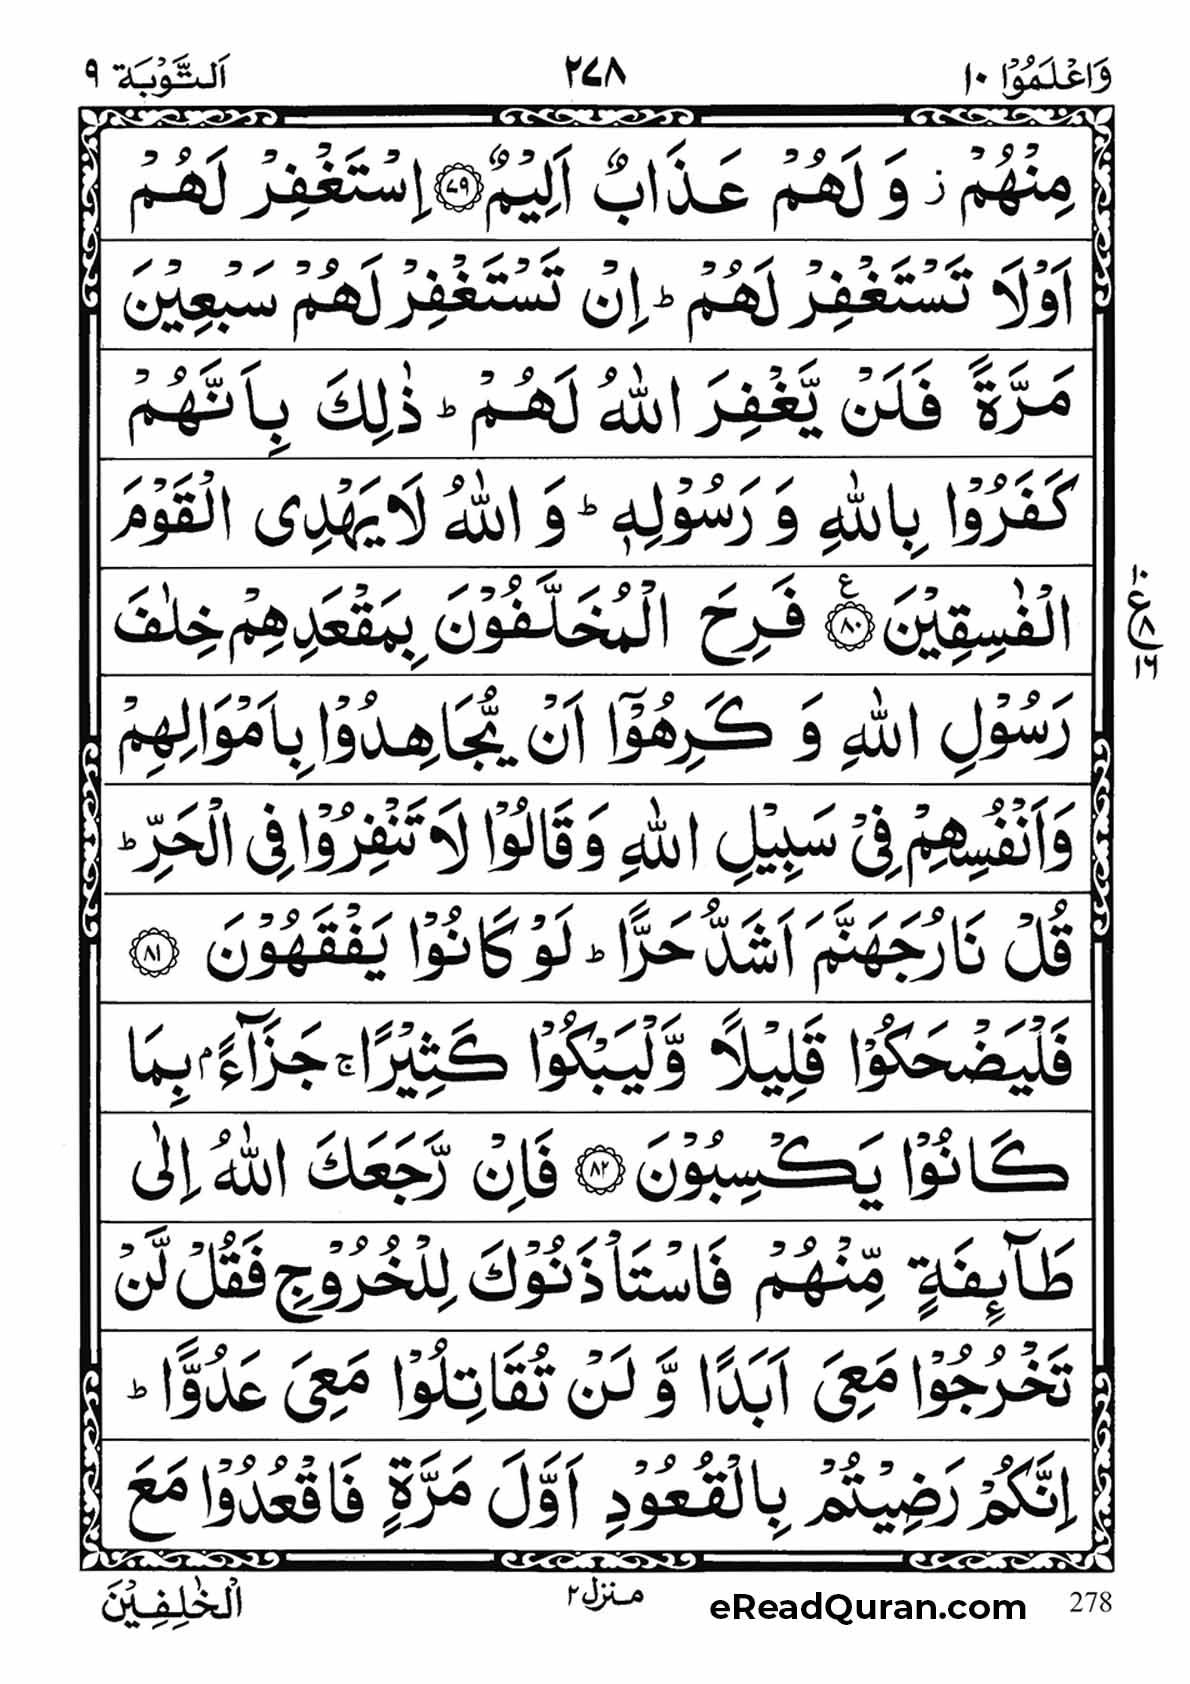 وَاعْلَمُوْٓا ١٠ ٢٧٨ اَلتَّوْبَة ٩
مِنْهُمْ ز وَ لَهُمْ عَذَابٌ اَلِيْمٌ ﴿٧٩﴾ اِسْتَغْفِرْ لَهُمْ
اَوْلَا تَسْتَغْفِرْ لَهُمْ ط اِنْ تَسْتَغْفِرْ لَهُمْ سَبْعِيْنَ
مَرَّةً فَلَنْ يَّغْفِرَ اللّٰهُ لَهُمْ ط ذٰلِكَ بِاَنَّهُمْ
كَفَرُوْا بِاللّٰهِ وَ رَسُوْلِهٖ ط وَ اللّٰهُ لَا يَهْدِى الْقَوْمَ
الْفٰسِقِيْنَ ﴿٨٠﴾ ع فَرِحَ الْمُخَلَّفُوْنَ بِمَقْعَدِهِمْ خِلٰفَ
١٠ ع ٨ ١٦
رَسُوْلِ اللّٰهِ وَ كَرِهُوْٓا اَنْ يُّجَاهِدُوْا بِاَمْوَالِهِمْ
وَاَنْفُسِهِمْ فِىْ سَبِيْلِ اللّٰهِ وَقَالُوْا لَا تَنْفِرُوْا فِى الْحَرِّ ط
قُلْ نَارُ جَهَنَّمَ اَشَدُّ حَرًّا ط لَوْ كَانُوْا يَفْقَهُوْنَ ﴿٨١﴾
فَلْيَضْحَكُوْا قَلِيْلًا وَّلْيَبْكُوْا كَثِيْرًا ج جَزَآءًۢ بِمَا
كَانُوْا يَكْسِبُوْنَ ﴿٨٢﴾ فَاِنْ رَّجَعَكَ اللّٰهُ اِلٰى
طَآئِفَةٍ مِّنْهُمْ فَاسْتَاْذَنُوْكَ لِلْخُرُوْجِ فَقُلْ لَّنْ
تَخْرُجُوْا مَعِىَ اَبَدًا وَّ لَنْ تُقَاتِلُوْا مَعِىَ عَدُوًّا ط
اِنَّكُمْ رَضِيْتُمْ بِالْقُعُوْدِ اَوَّلَ مَرَّةٍ فَاقْعُدُوْا مَعَ
278 eReadQuran.com منزل ٢ الْخٰلِفِيْنَ